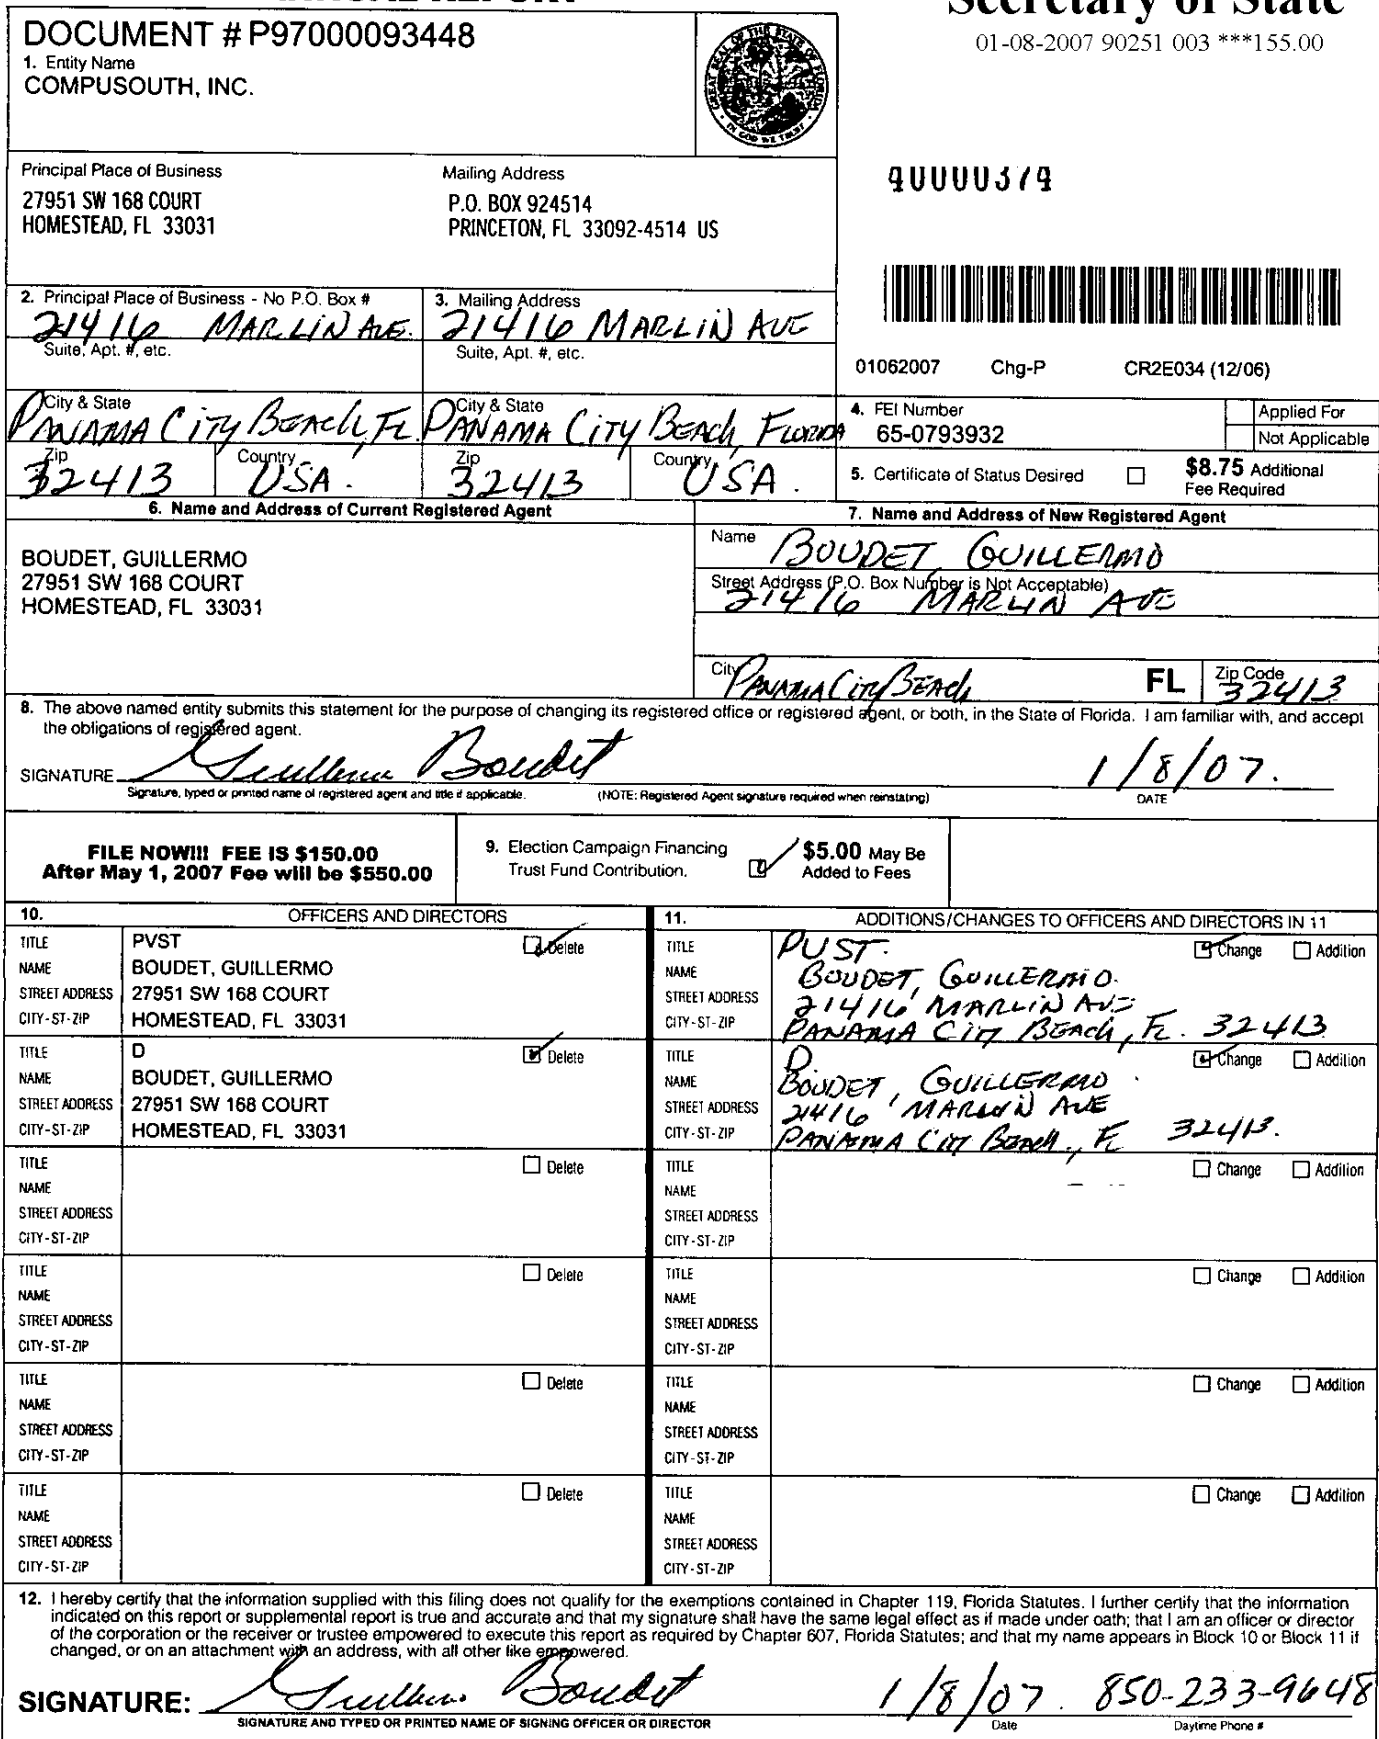 Secretary of State
01-08-2007 90251 003 ***155.00
DOCUMENT # P97000093448
1. Entity Name
COMPUSOUTH, INC.
GREAT SEAL OF THE STATE OF FLORIDA
IN GOD WE TRUST
Principal Place of Business
27951 SW 168 COURT
HOMESTEAD, FL 33031
Mailing Address
P.O. BOX 924514
PRINCETON, FL 33092-4514 US
40000374
2. Principal Place of Business - No P.O. Box #
21416 MARLIN AVE.
Suite, Apt. #, etc.
3. Mailing Address
21416 MARLIN AVE
Suite, Apt. #, etc.
01062007 Chg-P CR2E034 (12/06)
City & State
PANAMA CITY BEACH, FL.
City & State
PANAMA CITY BEACH, FLORIDA
Zip
32413
Country
USA.
Zip
32413
Country
USA.
4. FEI Number
65-0793932
Applied For
Not Applicable
5. Certificate of Status Desired
$8.75 Additional
Fee Required
6. Name and Address of Current Registered Agent
BOUDET, GUILLERMO
27951 SW 168 COURT
HOMESTEAD, FL 33031
7. Name and Address of New Registered Agent
Name
BOUDET, GUILLERMO
Street Address (P.O. Box Number is Not Acceptable)
21416 MARLIN AVE
City
PANAMA CITY BEACH
FL
Zip Code
32413
8. The above named entity submits this statement for the purpose of changing its registered office or registered agent, or both, in the State of Florida. I am familiar with, and accept
the obligations of registered agent.
SIGNATURE Guillermo Boudet 1/8/07.
Signature, typed or printed name of registered agent and title if applicable. (NOTE: Registered Agent signature required when reinstating) DATE
FILE NOW!!! FEE IS $150.00
After May 1, 2007 Fee will be $550.00
9. Election Campaign Financing
Trust Fund Contribution.
$5.00 May Be
Added to Fees
10. OFFICERS AND DIRECTORS
TITLE PVST Delete
NAME BOUDET, GUILLERMO
STREET ADDRESS 27951 SW 168 COURT
CITY-ST-ZIP HOMESTEAD, FL 33031
TITLE D Delete
NAME BOUDET, GUILLERMO
STREET ADDRESS 27951 SW 168 COURT
CITY-ST-ZIP HOMESTEAD, FL 33031
TITLE Delete
NAME
STREET ADDRESS
CITY-ST-ZIP
TITLE Delete
NAME
STREET ADDRESS
CITY-ST-ZIP
TITLE Delete
NAME
STREET ADDRESS
CITY-ST-ZIP
TITLE Delete
NAME
STREET ADDRESS
CITY-ST-ZIP
11. ADDITIONS/CHANGES TO OFFICERS AND DIRECTORS IN 11
TITLE PVST. Change Addition
NAME BOUDET, GUILLERMO.
STREET ADDRESS 21416 MARLIN AVE
CITY-ST-ZIP PANAMA CITY BEACH, FL. 32413
TITLE D Change Addition
NAME BOUDET, GUILLERMO
STREET ADDRESS 21416 MARLIN AVE
CITY-ST-ZIP PANAMA CITY BEACH, FL 32413.
TITLE Change Addition
NAME
STREET ADDRESS
CITY-ST-ZIP
TITLE Change Addition
NAME
STREET ADDRESS
CITY-ST-ZIP
TITLE Change Addition
NAME
STREET ADDRESS
CITY-ST-ZIP
TITLE Change Addition
NAME
STREET ADDRESS
CITY-ST-ZIP
12. I hereby certify that the information supplied with this filing does not qualify for the exemptions contained in Chapter 119, Florida Statutes. I further certify that the information
indicated on this report or supplemental report is true and accurate and that my signature shall have the same legal effect as if made under oath; that I am an officer or director
of the corporation or the receiver or trustee empowered to execute this report as required by Chapter 607, Florida Statutes; and that my name appears in Block 10 or Block 11 if
changed, or on an attachment with an address, with all other like empowered.
SIGNATURE: Guillermo Boudet 1/8/07. 850-233-9648
SIGNATURE AND TYPED OR PRINTED NAME OF SIGNING OFFICER OR DIRECTOR Date Daytime Phone #